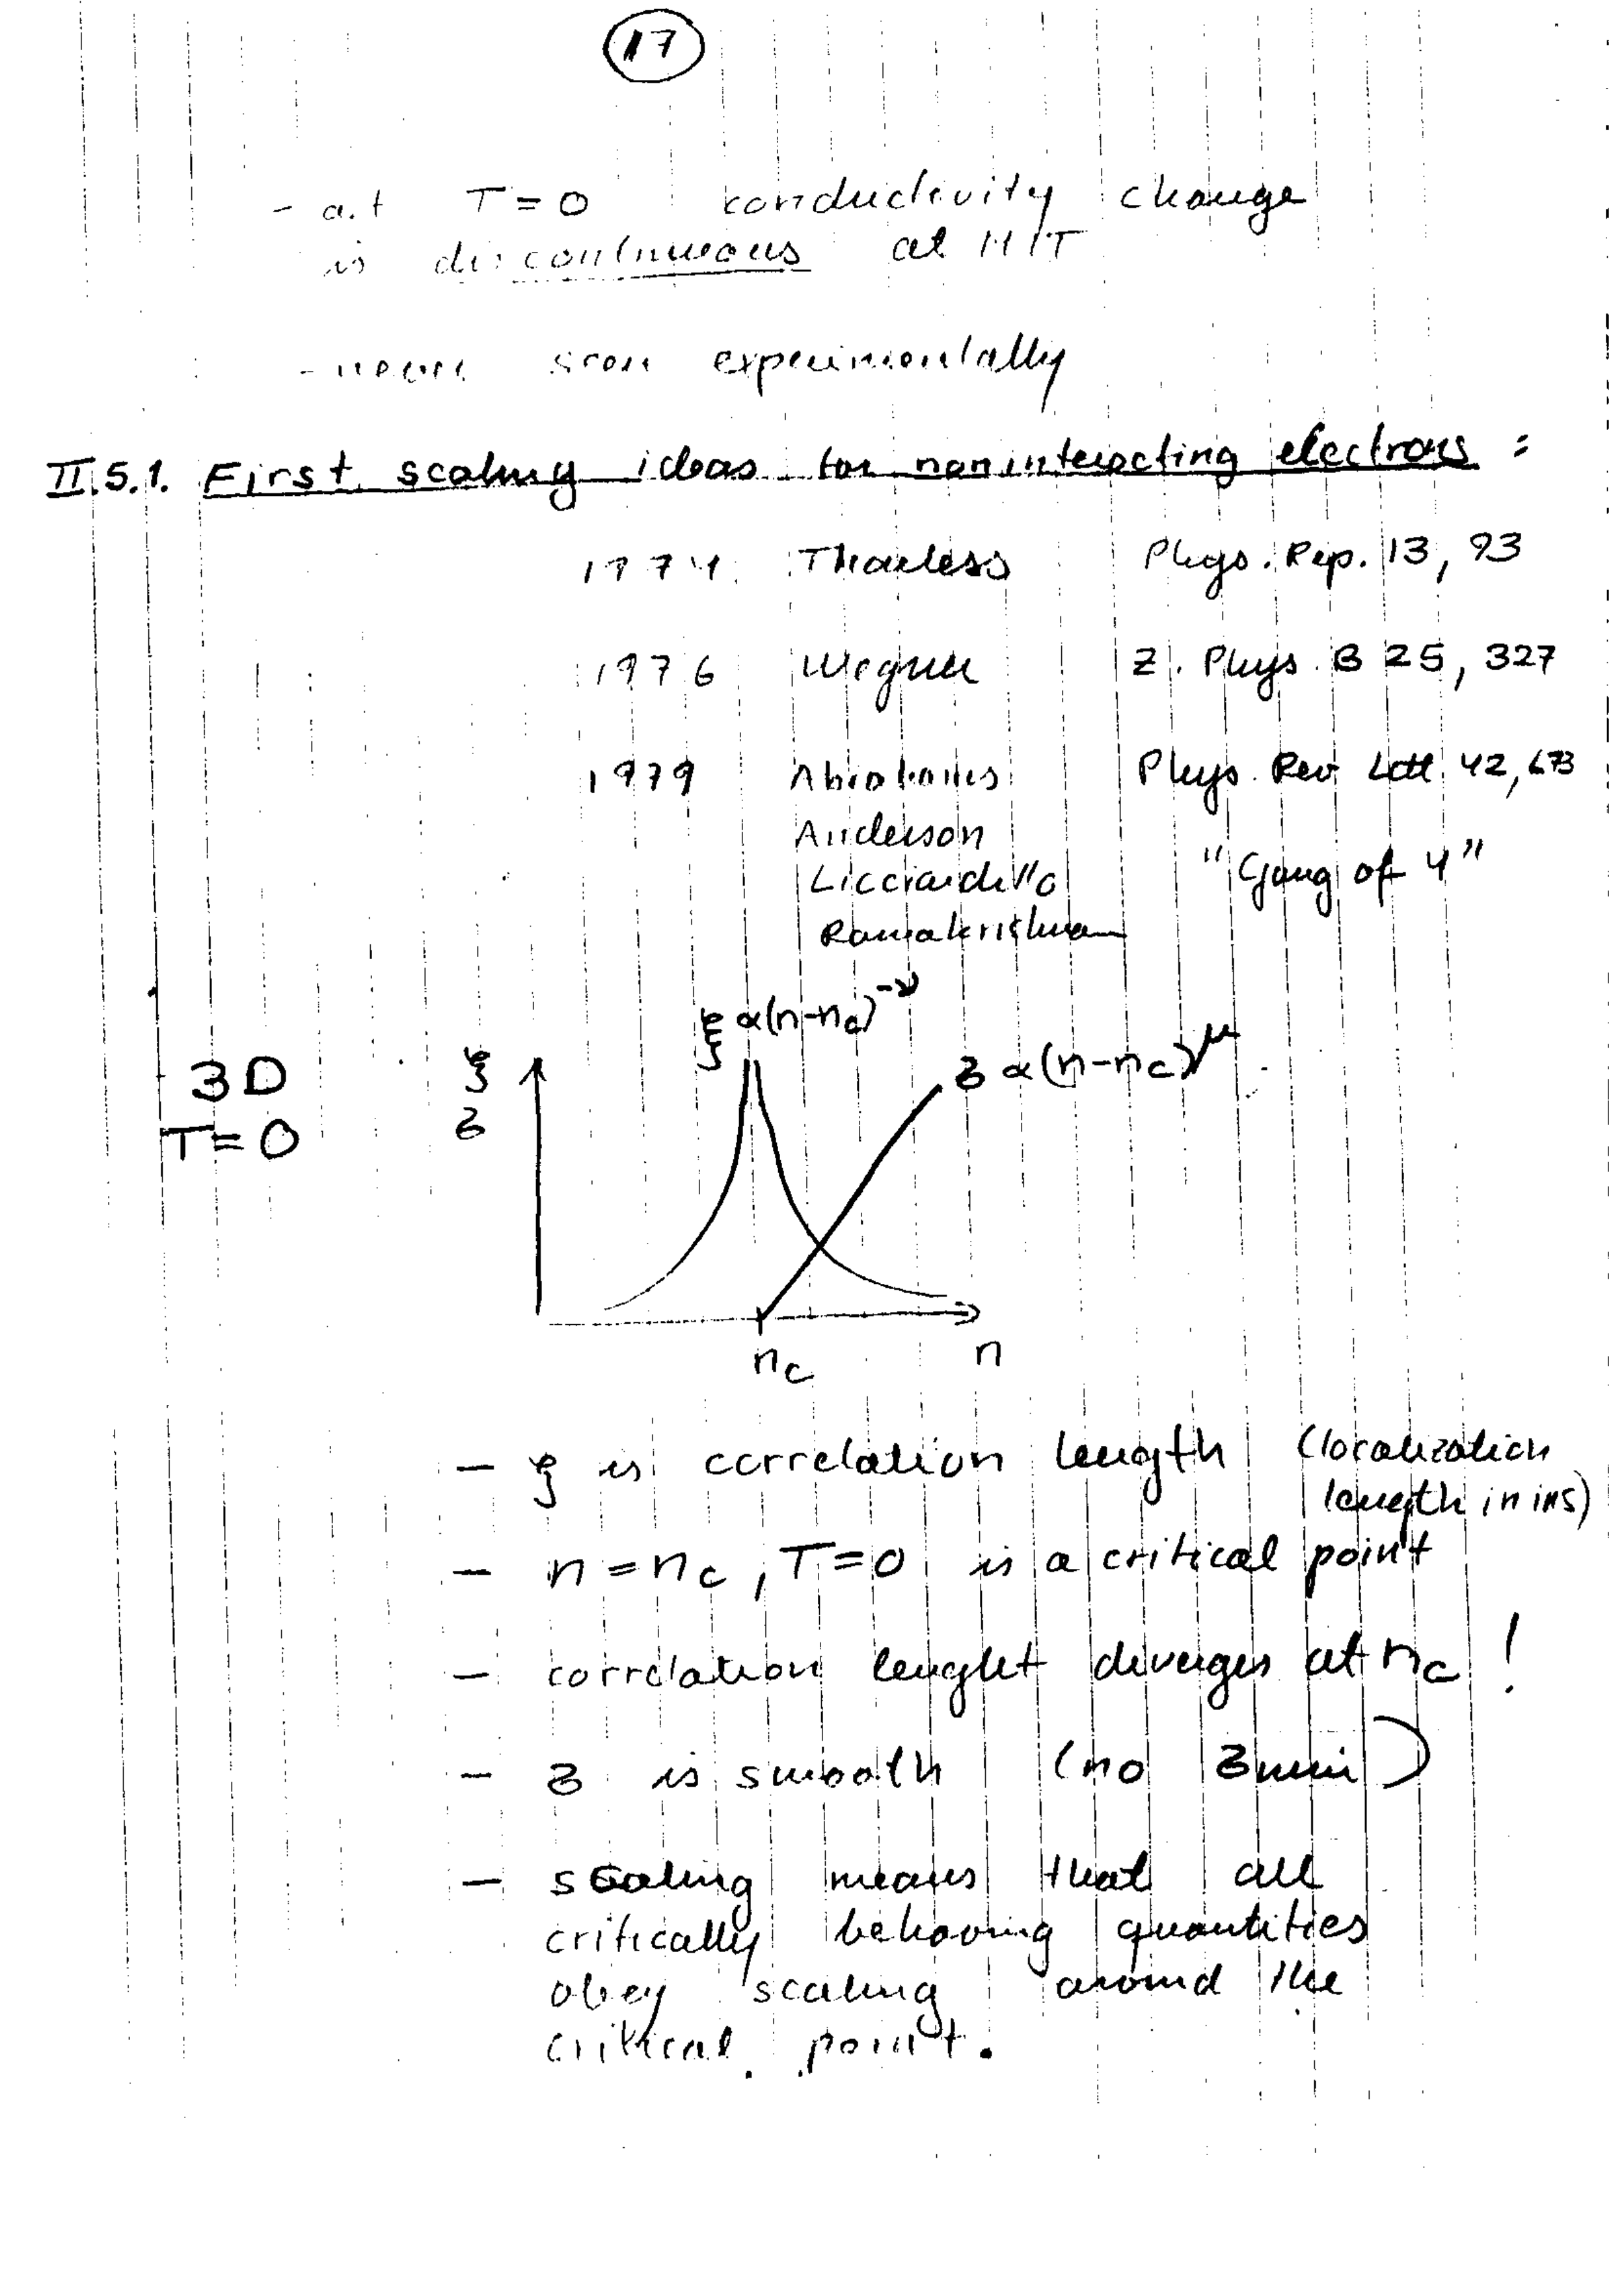 17
- at T = 0 conductivity change
is discontinueous at MIT
- never seen experimentally
II.5.1. First scaling ideas for noninteracting electrons :
1974 Thouless Phys. Rep. 13, 93
1976 Wegner Z. Phys. B 25, 327
1979 Abrahams Phys. Rev Lett 42, 673
Anderson
Licciardello "Gang of 4"
Ramakrishnan
ξ ∝ (n-nc)^-ν
3D ξ σ ∝ (n-nc)^μ
T=0 σ
nc n
- ξ is correlation length (localization
length in ins)
- n = nc , T=0 is a critical point
- correlation lenght diverges at nc !
- σ is smooth (no σmin)
- scaling means that all
critically behaving quantities
obey scaling around the
critical point.